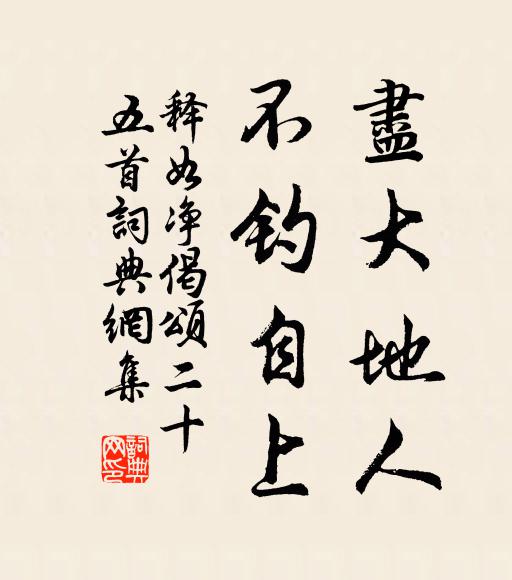 盡大地人
不釣自上
释如净偈頌二十
五首詞典網集
詞典网印